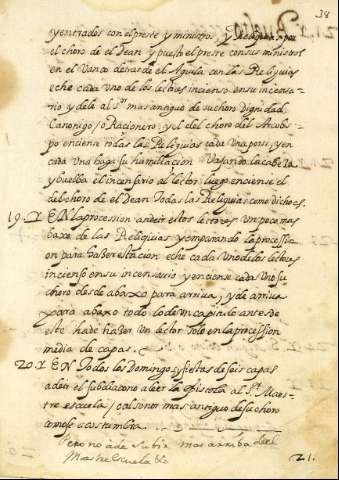 38
y entrados con el preste y ministros y
el choro del Dean y puesto el preste con sus ministros
en el vanco detras de el Aguila con las Reliquias
eche cada uno de los lectores incienso en su incensa-
rio y dele al Sr. mas antiguo de su choro dignidad
Canonigo / o Racionero y el del choro del Arcobis-
po enciense todas las Reliquias cada una por si y en
cada una haga su humillacion vajando la cabeza
y buelva el incensario al lector luego enciense el
del choro de el Dean todas las Reliquias como dicho es.
19. EN la procession an de ir estos lectores un poco mas
baxo de las Reliquias y en parando la procession
on para haber estacion eche cada uno de los lectores
incienso en su incensario y enciense cada uno su
choro desde abaxo para arriva, y de arriva
para abaxo todo lo de mas
este ha de hazer un lector solo en la procession
media de capas.
20. EN todos los domingos y fiestas de seis capas
a de ir el subdiacono a leer la epistola al Sr. Maes-
tre escuela / o al señor mas antiguo de su choro
como se acostumbra
Pero no a de subir mas arriba del
Mastrescuela
21.